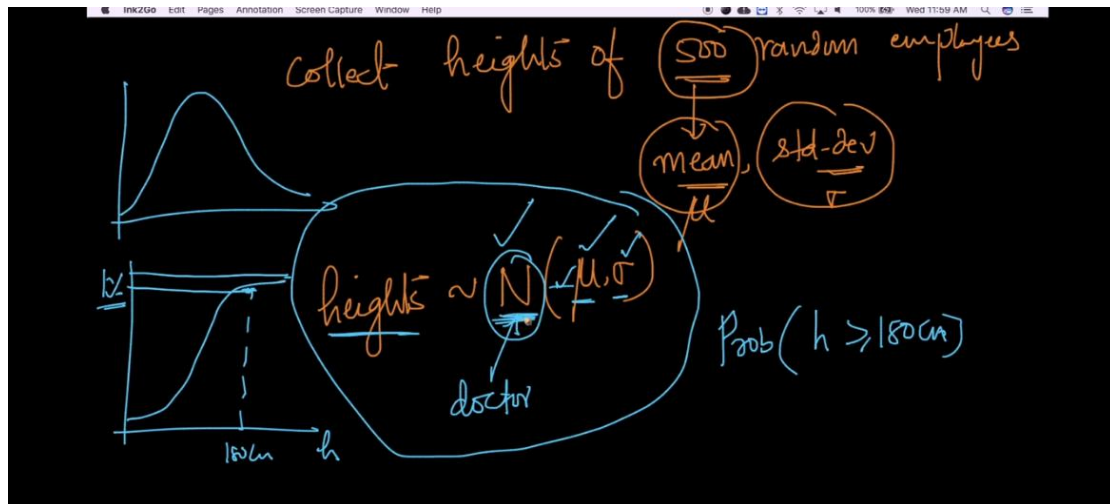 Ink2Go Edit Pages Annotation Screen Capture Window Help 100% Wed 11:59 AM
Collect heights of 500 random employees
mean, std-dev
μ σ
heights ~ N (μ, σ)
1%
Prob(h ≥ 180cm)
doctor
180cm h